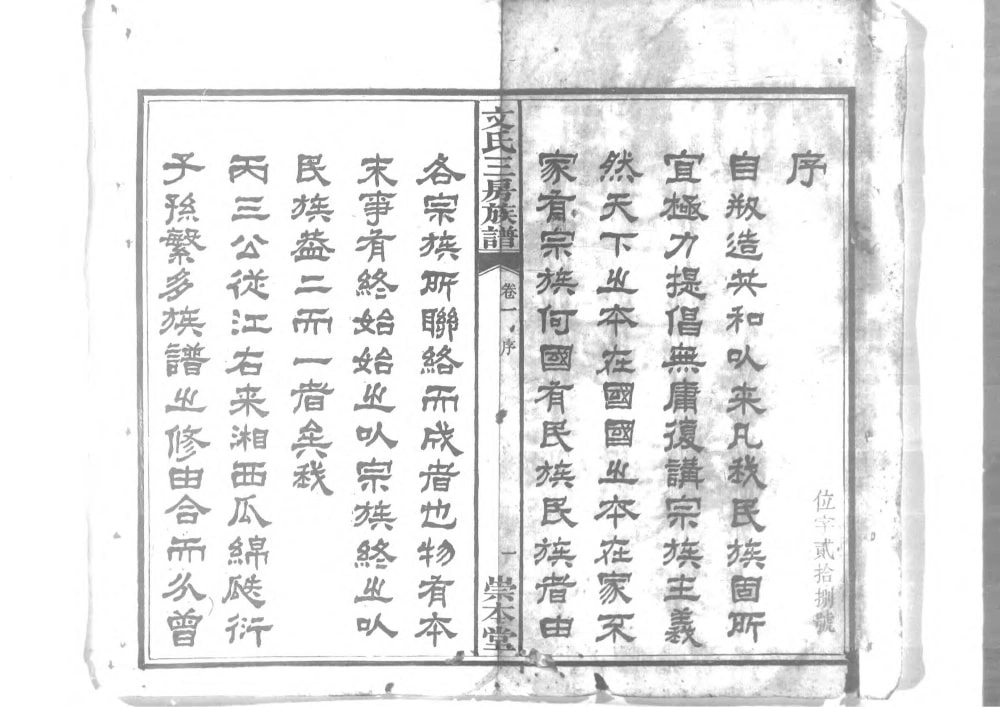 序
自剏造共和㕥来凡我民族固所
宜極力提倡無庸復講宗族主義
然天下㞢本在國國㞢本在家不
家有宗族何國有民族民族者由
文氏三房族譜
卷一
序
一
崇本堂
各宗族所聯絡而成者也物有本
末事有終始始㞢㕥宗族終㞢㕥
民族葢二而一者矣我
丙三公從江右来湘西瓜綿瓞衍
子孫繁多族譜㞢修由合而分曾
位字貳拾捌號